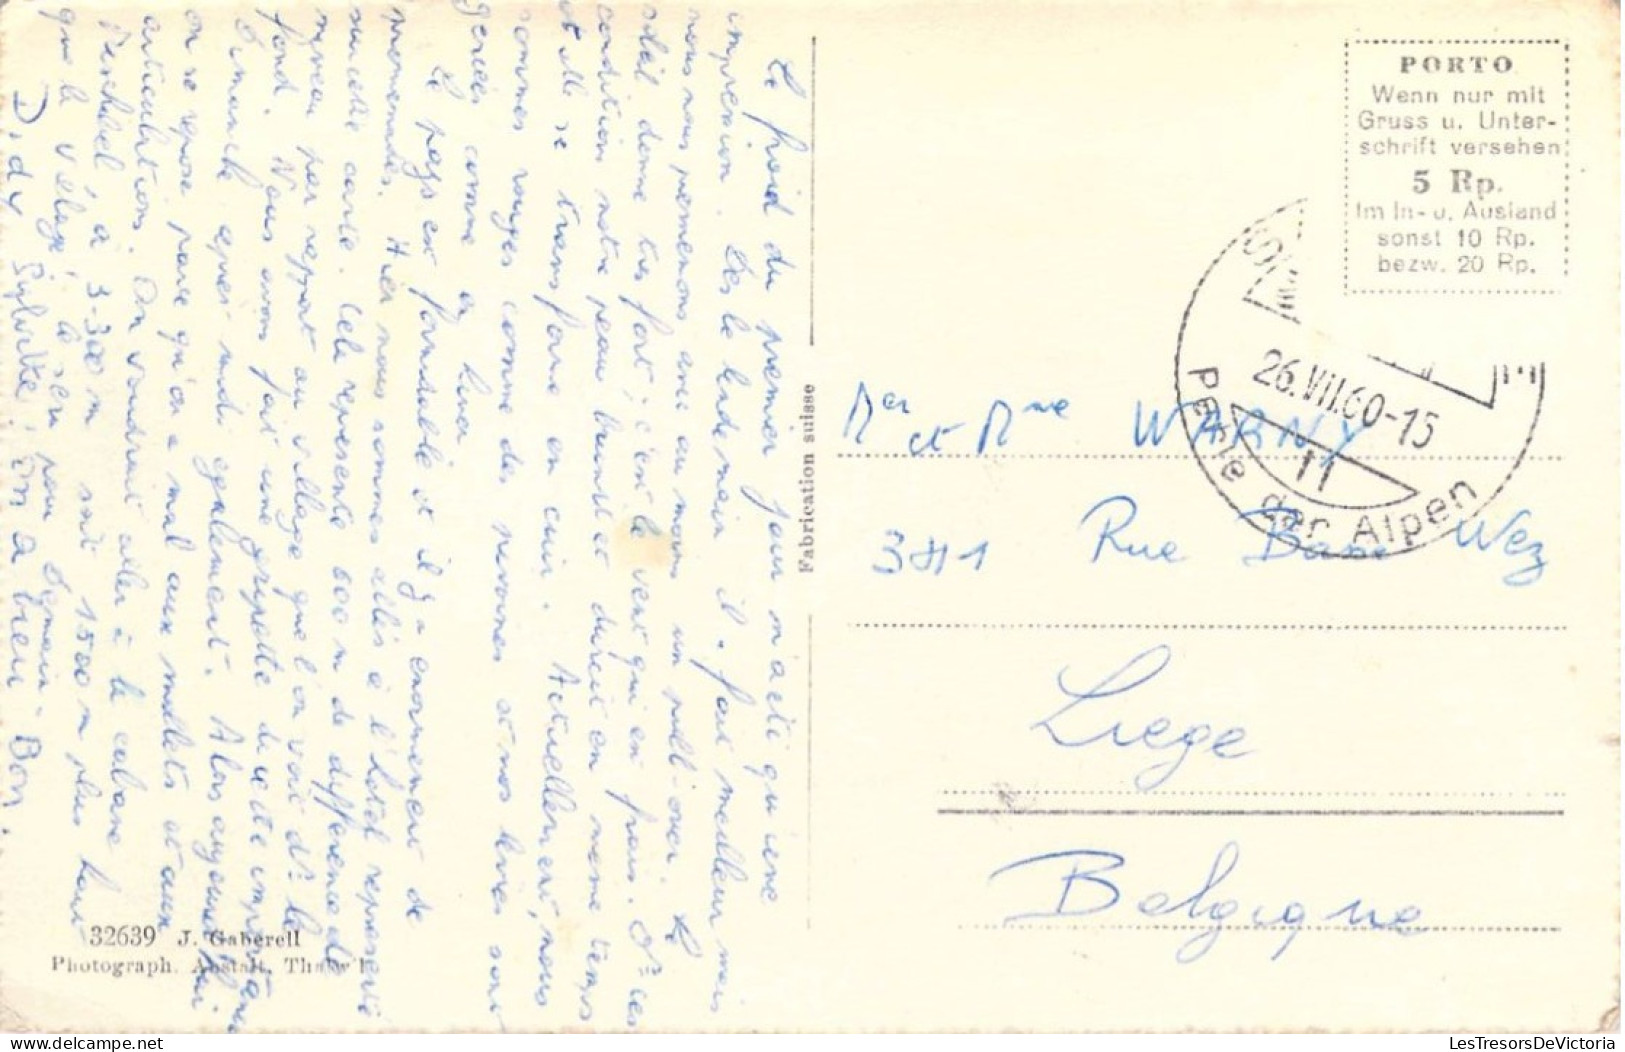 Le froid du premier jour n'a été qu'une
impression. Dès le lendemain il fait meilleur mais
nous nous promenons avec au moins un pull-over. Le
soleil donne très fort, c'est le vent qui est frais. Ds ces
conditions notre peau brunit et durcit en même temps
et elle se transforme en cuir. Actuellement, nous
sommes rouges comme des pivoines et nos lèvres sont
gercées comme en hiver
Le pays est formidable et il y a énormément de
promenades. Hier nous sommes allés à l'hôtel représenté
sur cette carte. Cela représente 600 m de différence de
niveau par rapport au village que l'on voit ds le
fond. Nous avons fait une grimpette du cette
Dimanche après-midi également. Alors aujourd'hui
on se repose parce qu'on a mal aux mollets et aux
articulations. On voudrait aller à la cabane
à 3.300 m soit 1500 m plus haut
que le village, le sera pour demain. Bon.
Didy Sylvette! On a bien
Fabrication suisse
32639 J. Gaberell
Photograph. Anstalt, Thalwil
PORTO
Wenn nur mit
Gruss u. Unter-
schrift versehen
5 Rp.
Im In- u. Ausland
sonst 10 Rp.
bezw. 20 Rp.
26.VII.60-15
11
Perle der Alpen
Mer et Mme WARNY
381 Rue Basse Wez
Liege
Belgique
© LesTresorsDeVictoria
LesTresorsDeVictoria.com